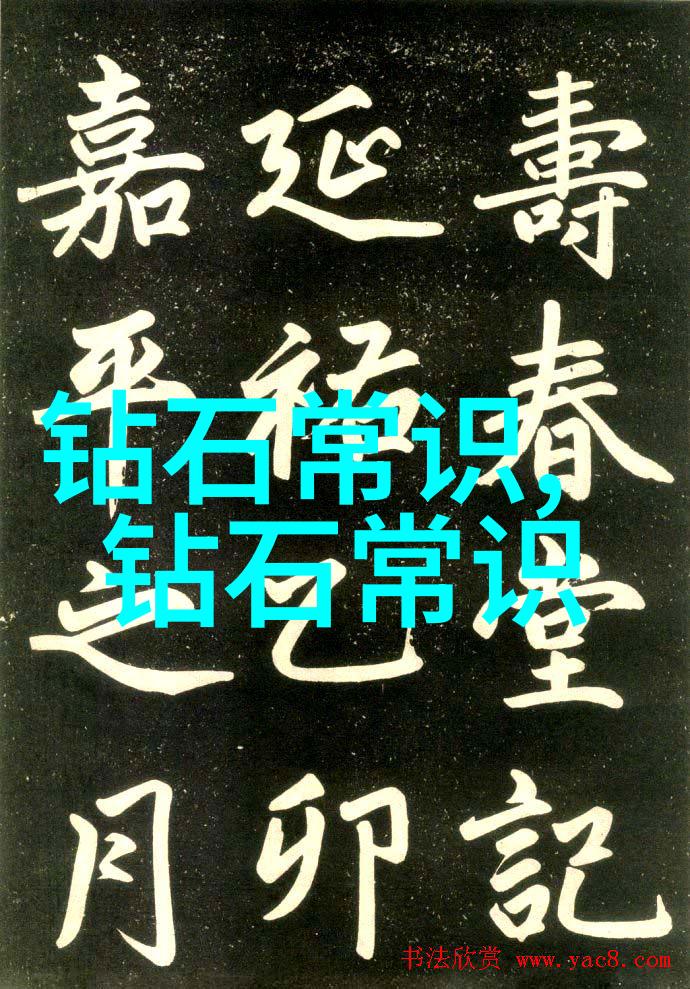 壽春堂記
延祐乙卯
嘉平之月
钻石常识,
钻石常识
书法欣赏 www.yac8.com